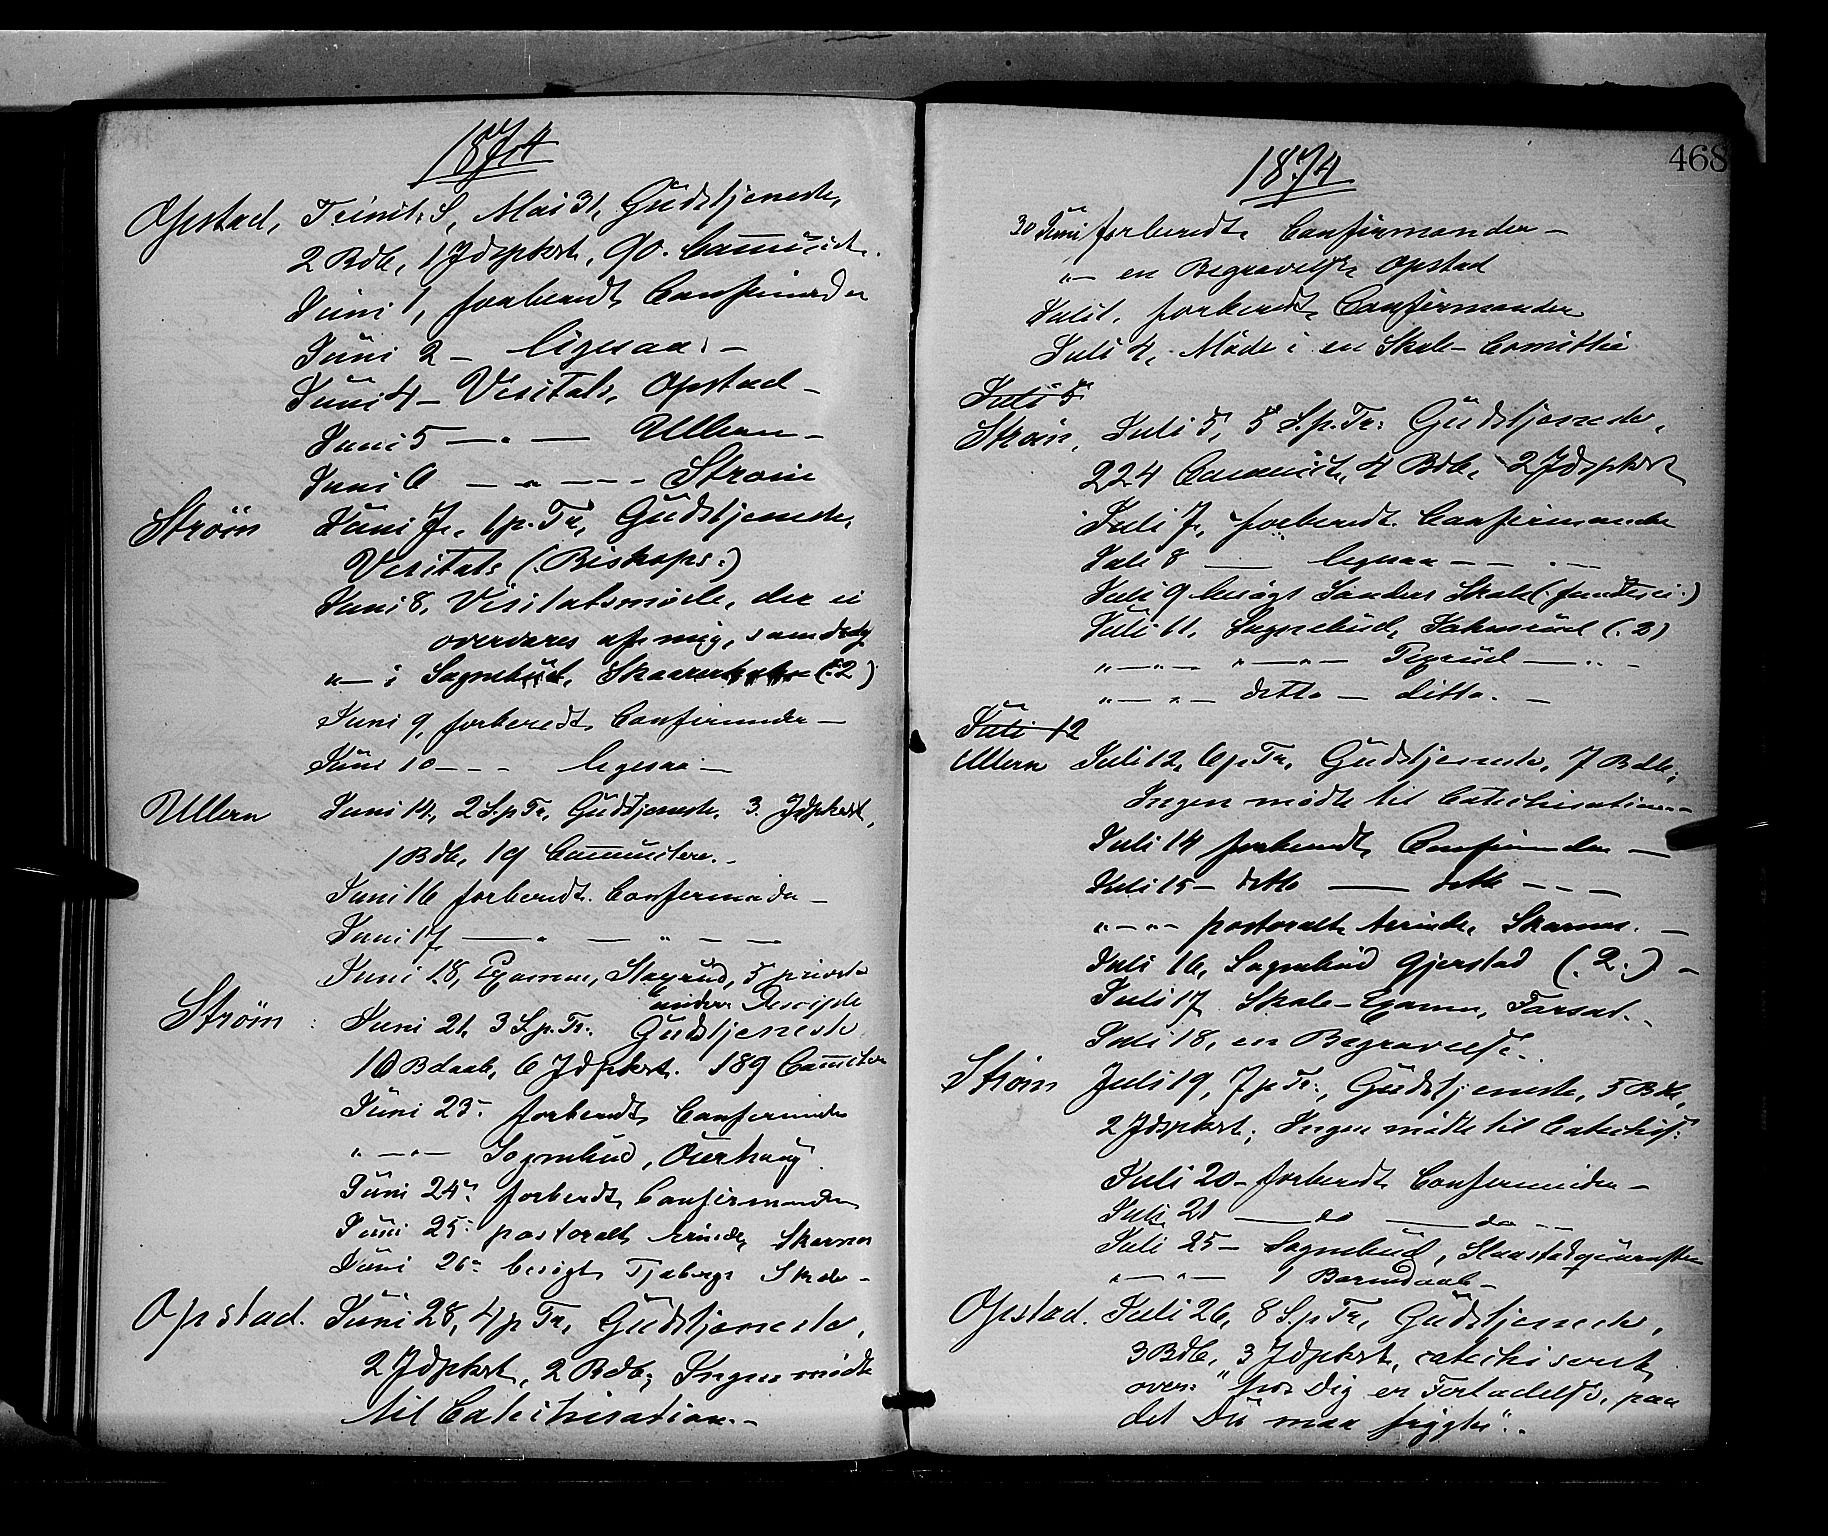 1874
Opstad, Trinit. S, Mai 31, Gudstjeneste,
2 Bdb, 1 Jdspkrt, 90. Communict.
Juni 1, forberedt Confirmander
Juni 2 - ligesaa. -
Juni 4 - Visitats, Opstad -
Juni 5 — " — Ullern -
Juni 6 — " — - - Strøm
Strøm Juni 7, 1 p. Tr, Gudstjeneste,
Visitats (: Biskops :)
Juni 8, Visitatsmøde, der ei
overværes af mig, som drog
" — i Sognebud, (: 2)
Juni 9, forberedt Confirmander —
Juni 10 - - - ligesaa —
Ullern Juni 14, 2 S. p Tr, Gudstjeneste, 3 Jdspkrt,
1 Bdb, 19 Communictere. -
Juni 16 forberedt Confirmander -
Juni 17 — " — " - —
Juni 18, Examen, Slaxrud, 5 private
under Discipsle
Strøm Juni 21, 3 S. p. Tr. Gudstjeneste
10 Bdaab, 6 Jdspkrt. 189 Commictere
Juni 23 forberedt Confirmander
" — " — Sognebud, Ouerhaug
Juni 24 forberedt Confirmander
Juni 25 pastoralt Ærinde, Skarnes
Juni 26 besøgt Tjabergs Skole -
Opstad. Juni 28, 4 p Tr, Gudstjeneste,
2 Jdspkrt, 2 Bdb; Ingen mødte
til Catechisation. -
1874
468
30 Juni forberedt Confirmander -
" — en Begravelse Opstad
Juli 1. forberedt Confirmander
Juli 4, Møde i en Skole-Comittee
Juli 5
Strøm, Juli 5, 5 S. p. Tr: Gudstjeneste,
224 Communict, 4 Bdb, 2 Jdspkrt
Juli 7, forberedt Confirmander
Juli 8 — ligesaa — — . —
Juli 9 besøgt Sanders Skole (: fandt ei :)
Juli 11, Sognebud, (: 2)
" — " — " — " — — " -
" — " — detto — ditto. -
Juli 12
Ullern Juli 12, 6 p Tr, Gudstjeneste, 7 Bdb;
Ingen mødte til Catechisation -
Juli 14 forberedt Confirmander —
Juli 15 - detto — detto - - -
" — " — pastoralt Ærinde, Skarnes. -
Juli 16, Sognebud Gjerstad (: 2 :) -
Juli 17 Skole-Examen, Farsat. -
Juli 18, en Begravelse.
Strøm Juli 19, 7 p Tr., Gudstjeneste, 5 Bdb,
2 Jdspkrt; Ingen mødte til Catechis:
Juli 20 - forberedt Confirmander -
Juli 21 — do — do - -
Juli 25 - Sognebud,
" — " — 1 Barnedaab -
Opstad. Juli 26, 8 S. p Tr, Gudstjeneste,
3 Bdb, 3 Jdspkrt, catechiseret
over: "hos Dig er Forladelse, paa
det Du maa frygtes". -